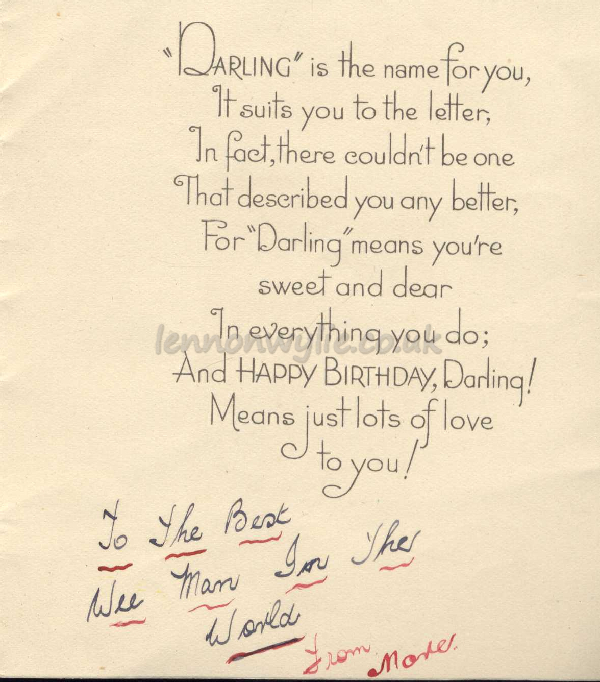 "DARLING" is the name for you,
It suits you to the letter,
In fact, there couldn't be one
That described you any better,
For "Darling" means you're
sweet and dear
In everything you do;
lennonwylie.co.uk
And HAPPY BIRTHDAY, Darling!
Means just lots of love
to you!
To The Best
Wee Man In The
World
From